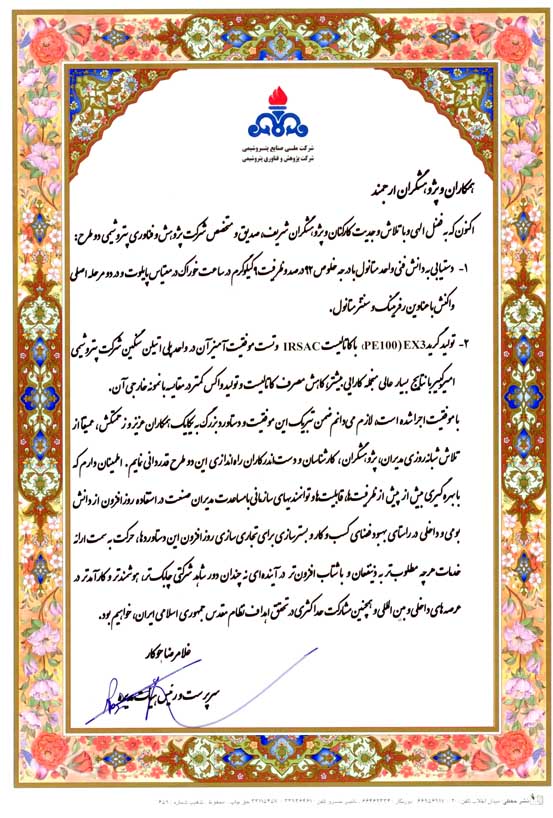 شرکت ملی صنایع پتروشیمی
شرکت پژوهش و فناوری پتروشیمی
همکاران و پژوهشگران ارجمند
اکنون که به فضل الهی و با تلاش و جدیت کارکنان و پژوهشگران شریف، صدیق و متخصص شرکت پژوهش و فناوری پتروشیمی دو طرح:
۱- دستیابی به دانش فنی واحد متانول با درجه خلوص ۹۲ درصد و ظرفیت ۹ کیلوگرم در ساعت خوراک در مقیاس پایلوت و در دو مرحله اصلی
واکنش با عناوین رفرمینگ و سنتز متانول.
۲- تولید گرید EX3 (PE100) با کاتالیست IRSAC و تست موفقیت آمیز آن در واحد پلی اتیلن سنگین شرکت پتروشیمی
امیرکبیر با نتایج بسیار عالی منجمله کارایی بیشتر، کاهش مصرف کاتالیست و تولید واکس کمتر در مقایسه با نمونه خارجی آن.
با موفقیت اجرا شده است، لازم می دانم ضمن تبریک این موفقیت و دستاورد بزرگ به یکایک همکاران عزیز و زحمتکش، عمیقا از
تلاش شبانه روزی مدیران، پژوهشگران، کارشناسان و دست اندرکاران راه اندازی این دو طرح قدردانی نمایم. اطمینان دارم که
با بهره گیری بیش از پیش از ظرفیت ها، قابلیت ها و توانمندیهای سازمانی با مساعدت مدیران صنعت در استفاده روزافزون از دانش
بومی و داخلی در راستای بهبود فضای کسب و کار و بسترسازی برای تجاری سازی روزافزون این دستاوردها، حرکت به سمت ارائه
خدمات هرچه مطلوب تر به ذینفعان و با شتاب افزون تر در آینده ای نه چندان دور شاهد شرکتی چابک تر، هوشمندتر و کارآمدتر در
عرصه های داخلی و بین المللی و همچنین مشارکت حداکثری در تحقق اهداف نظام مقدس جمهوری اسلامی ایران، خواهیم بود.
غلامرضا جوکار
سرپرست و رئیس هیات مدیره